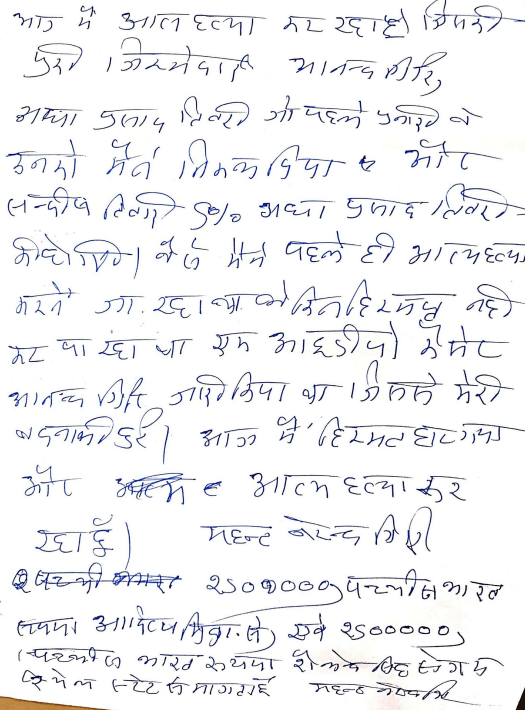 आज मैं आत्म हत्या कर रहा हूँ जिसकी
पूरी जिम्मेदारी आनन्द गिरि,
आद्या प्रसाद तिवारी जो पहले पुजारी थे
उनको मैंने निकाल दिया और
सन्दीप तिवारी s/o आद्या प्रसाद तिवारी
की होगी। वैसे मैंने पहले ही आत्महत्या
करने जा रहा था लेकिन हिम्मत नहीं
कर पा रहा था एक आडीयो कैसेट
आनन्द गिरि जारी किया था जिससे मेरी
बदनामी हुई। आज मैं हिम्मत हार गया
और आत्म हत्या कर
रहा हूँ। महन्त नरेन्द्र गिरि
2500000) पच्चीस लाख
रुपया आदित्य मिश्रा से) एवं 2500000)
पच्चीस लाख रुपया शैलेन्द्र सिंह सेंगर
रियल स्टेट से मांगता हूँ महन्त नरेन्द्र गिरि